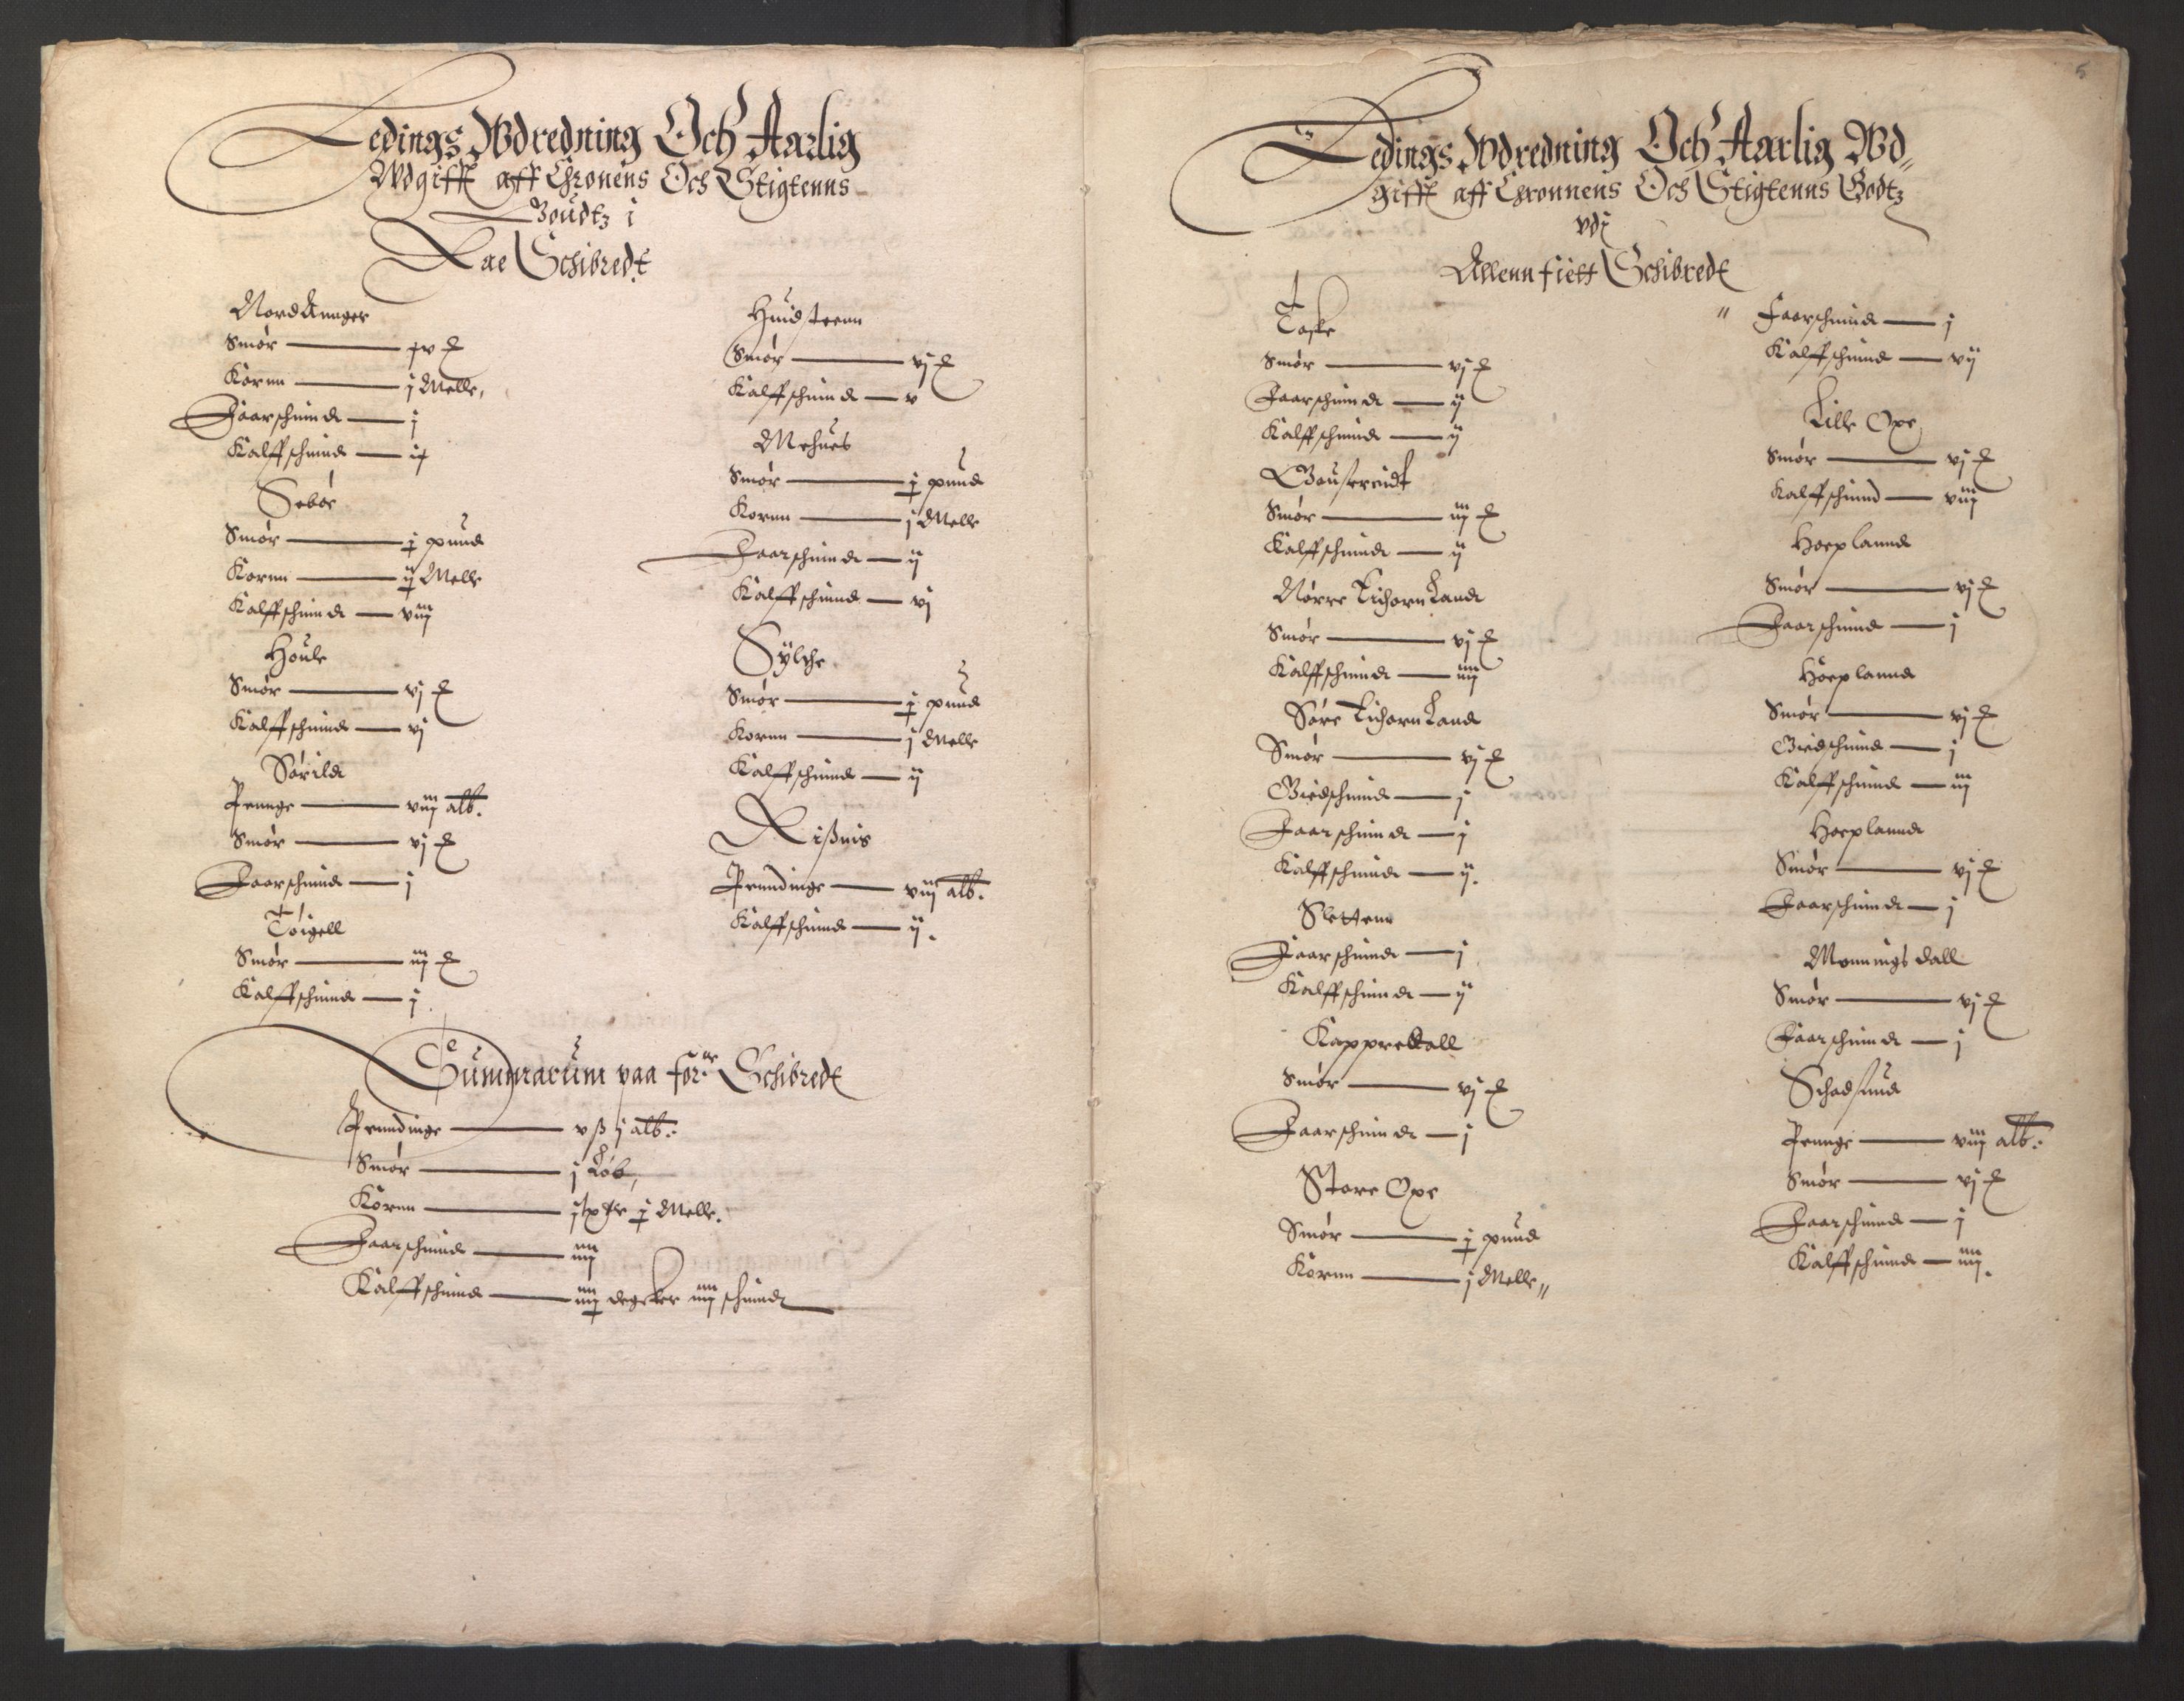 Ledings Wdredning Och Aarlig
Wdgifft aff Chronens Och Stigtenns
Goudtz i
Rae Schibredt
Nord Anuger
Smør — xv ℔
Kornn — j Melle,
Faarschinnd — j
Kalffschinnd — ix
Sebøe
Smør — j pund
Kornn — ij Melle
Kalffschinnd — viij
Houle
Smør — vj ℔
Kalffschinnd — vj
Sørild
Pennge — viij alb.
Smør — vj ℔
Faarschinnd — j
Tøigell
Smør — iij ℔
Kalffschinnd — j
Huidsteenn
Smør — vj ℔
Kalffschinnd — v
Mehues
Smør — j pund
Kornn — j Melle
Faarschinnd — ij
Kalffschinnd — vj
Sylthe
Smør — j pund
Kornn — j Melle
Kalffschinnd — ij
Rißnis
Penndinge — viij alb.
Kalffschinnd — ij.
Summarum paa for:ne Schibredt
Penndinge — v ß j alb.
Smør — j Løb,
Kornn — j j Melle.
Faarschinnd — iiij
Kalffschinnd — iiij degcker iiij schinnd
5
Ledings Wdredning Och Aarlig Wd„
gifft aff Chronnens Och Stigtenns Godtz
vdi
Allennfiett Schibredt
Taske
Smør — vj ℔
Faarschinnd — ij
Kalffschinnd — ij
Gousereidt
Smør — iij ℔
Kalffschinnd — ij
Nørre Lichorn Land
Smør — vj ℔
Kalffschinnd — iiij
Søre Lichorn Land
Smør — vj ℔
Giedschinnd — j
Faarschinnd — j
Kalffschinnd — ij.
Slettenn
Faarschinnd — j
Kalffschinnd — ij
Kappredall
Smør — vj ℔
Faarschinnd — j
Store Oxe
Smør — j pund
Kornn — j Melle„
„ Faarschinnd — j
Kalffschinnd — vij
Lille Oxe
Smør — vj ℔
Kalffschinnd — viij
Hoplannd
Smør — vj ℔
Faarschinnd — j
Hoplannd
Smør — vj ℔
Giedschinnd — j
Kalffschinnd — iij
Hoplannd
Smør — vj ℔
Faarschinnd — j
Monnings dall
Smør — vj ℔
Faarschinnd — j
Schadsund
Pennge — viij alb.
Smør — vj ℔
Faarschinnd — j
Kalffschinnd — iiij.